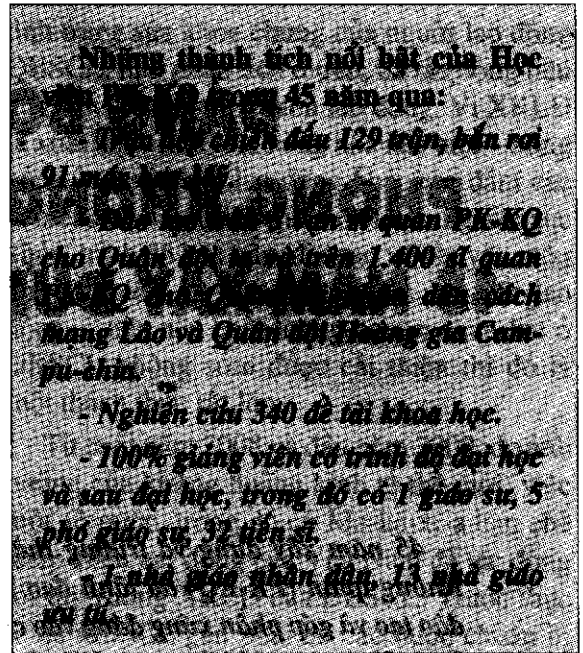 Những thành tích nổi bật của Học
viện PK-KQ trong 45 năm qua:
- Trực tiếp chiến đấu 129 trận, bắn rơi
91 máy bay Mỹ.
- Đào tạo trên vạn sĩ quan PK-KQ
cho Quân đội ta và trên 1.400 sĩ quan
PK-KQ cho Quân đội nhân dân cách
mạng Lào và Quân đội Hoàng gia Cam-
pu-chia.
- Nghiên cứu 340 đề tài khoa học.
- 100% giảng viên có trình độ đại học
và sau đại học, trong đó có 1 giáo sư, 5
phó giáo sư, 32 tiến sĩ.
- 1 nhà giáo nhân dân, 13 nhà giáo
ưu tú.